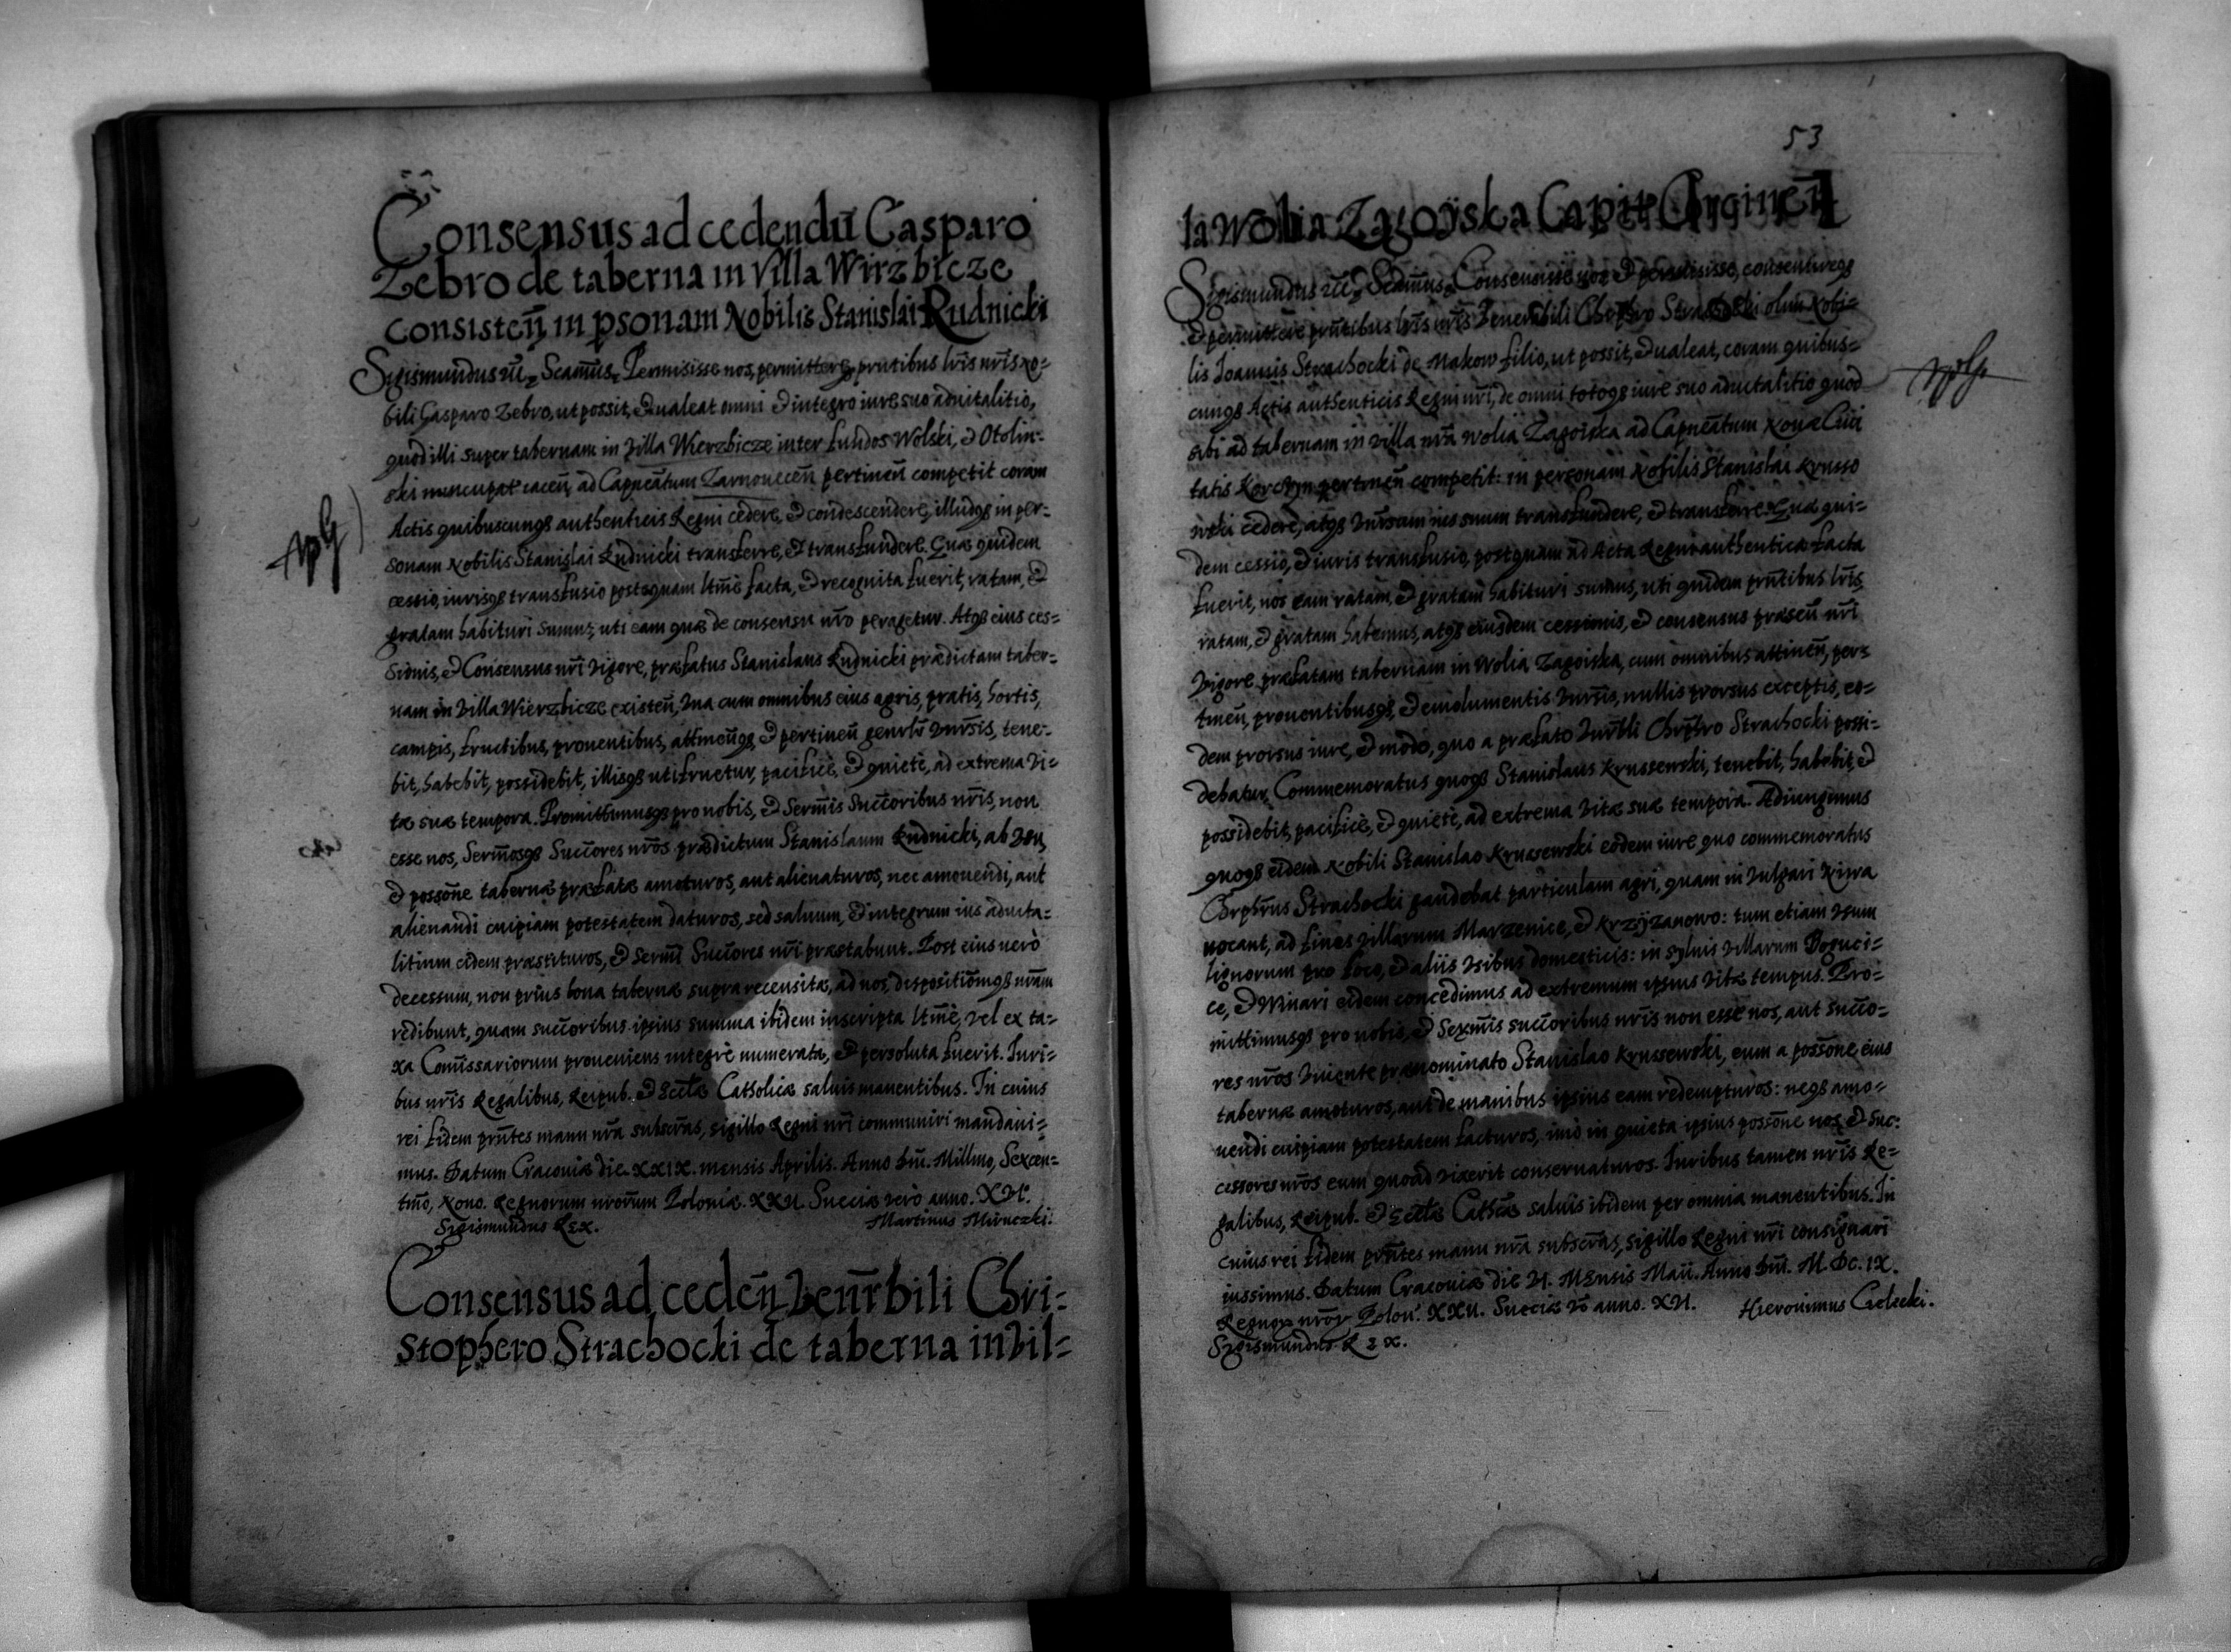 Consensus ad cedendū Casparo
Zebro de taberna in Villa Wirzbicze
consisteñ in psonam Nobilis Stanislai Rudnicki
Sigismundus Significamus Permisisse nos, permittereq prntibus lris nris No-
bili Casparo Zebro, ut possit, & ualeat omni & integro iure suo aduitalitio,
quod illi super tabernam in Villa Wierzbicze inter fundos Wolski, & Otolin-
ski nuncupat iaceñ, ad Capneātum Zarnoueceñ pertineñ competit coram
Actis quibuscunqs authenticis Regni cedere, & condescendere, illudqs in per-
sonam Nobilis Stanislai Rudnicki transferre, & transfundere. Quæ quidem
cessio, iurisqs transfusio postquam ltmè facta, & recognita fuerit, ratam, &
gratam habituri sumus, uti eam quæ de consensu nro peragetur. Atqs eius ces-
sionis, & Consensus nri vigore, præfatus Stanislaus Rudnicki prædictam taber-
nam in Villa Wierzbicze existeñ, Vna cum omnibus eius agris, pratis, hortis,
campis, fructibus, prouentibus, attineñqs, & pertineñ genrlr Vnrsis, tene-
bit, habebit, possidebit, illisqs utifruetur, pacificè, & quietè, ad extrema Vi-
tæ suæ tempora. Promittimusqs pro nobis, & Sermis Succoribus nris, non
esse nos, Sermosqs Succores nros prædictum Stanislaum Rudnicki, ab Vsu,
& possone tabernæ præfatæ amoturos, aut alienaturos, nec amouendi, aut
alienandi cuipiam potestatem daturos, sed saluum, & integrum ius aduita-
litium eidem præstituros, & Sermi Succores nri præstabunt. Post eius uerò
decessum, non prius bona tabernæ supra recensitæ, ad nos, dispositionēqs nram
redibunt, quam succoribus ipsius summa ibidem inscripta ltmè, vel ex ta-
xa Comissariorum proueniens integrè numerata, & persoluta fuerit. Iuri-
bus nris Regalibus, Reipub. & Eccłæ Catholicæ saluis manentibus. In cuius
rei fidem prntes manu nra subscras, sigillo Regni nri communiri mandaui-
mus. Datum Cracouiæ die XXIX. mensis Aprilis. Anno Dni. Millmo, Sexcen-
tmo, Nono. Regnorum nrorum Poloniæ XXII. Sueciæ verò anno. XVI.
Sigismundus Rex. Martinus
Consensus ad cedeñ Venrbili Chri-
stophero Strachocki de taberna in Vil-
53
la Wolia Zagoÿska Capit
Sigismundus Consensisse nos & permisisse, consentireqs
& permittere prntibus lris nris Venerabili Chrphro Strachocki olim Nobi-
lis Ioannis Strachocki de Makow filio, ut possit, & ualeat, coram quibus-
cunqs Actis authenticis Regni nri, de omni totoqs iure suo aduitalitio quod
sibi ad tabernam in Villa nra Wolia Zagoiska ad Capneātum Nouæ Ciui
tatis Korczyn pertineñ competit: in personam Nobilis Stanislai Krusso
wski cedere, atqs Vnrsum ius suum transfundere, & transferre. Quæ qui-
dem cessio, & iuris transfusio, postquam ad Acta Regni authentica facta
fuerit, nos eam ratam, & gratam habituri sumus, uti quidem prntibus lris
ratam, & gratam habemus, atqs eiusdem cessionis, & consensus præseñ nri
Vigore præfatam tabernam in Wolia Zagoiska, cum omnibus attineñ, per-
tineñ, prouentibusqs, & emolumentis Vnrsis, nullis prorsus exceptis, eo-
dem prorsus iure, & modo, quo a præfato Vnrbli Chrphro Strachocki possi-
debatur, Commemoratus quoqs Stanislaus Krussewski, tenebit, habebit, &
possidebit, pacificè, & quietè, ad extrema Vitæ suæ tempora. Adiungimus
quoqs eidem Nobili Stanislao Krussewski eodem iure quo commemoratus
Chrphrus Strachocki gaudebat particulam agri, quam in vulgari Niwa
uocant, ad fines Villarum Marzenice, & Krzÿzanowo: tum etiam Vsum
lignorum pro foco, & aliis Vsibus domesticis: in syluis Villarum Boguci-
ce, & Winari eidem concedimus ad extremum ipsius Vitæ tempus. Pro-
mittimusqs pro nobis, & Sermis succoribus nris non esse nos, aut succo-
res nros Viuente prænominato Stanislao Krussewski, eum a possone eius
tabernæ amoturos, aut de manibus ipsius eam redempturos: neqs amo-
uendi cuipiam potestatem facturos, imò in quieta ipsius possone nos, & Suc-
cessores nros eum quoad vixerit conseruaturos. Iuribus tamen nris Re-
galibus, Reipub. & Eccłæ Cathcæ saluis ibidem per omnia manentibus. In
cuius rei fidem prntes manu nra subscras, sigillo Regni nri consignari
iussimus. Datum Cracouiæ die VI. Mensis Maii. Anno Dni. M. Dc. IX.
Regnor nror Polon. XXII. Sueciæ vo anno. XVI. Hieronimus Cielecki.
Sigismundus Rex.